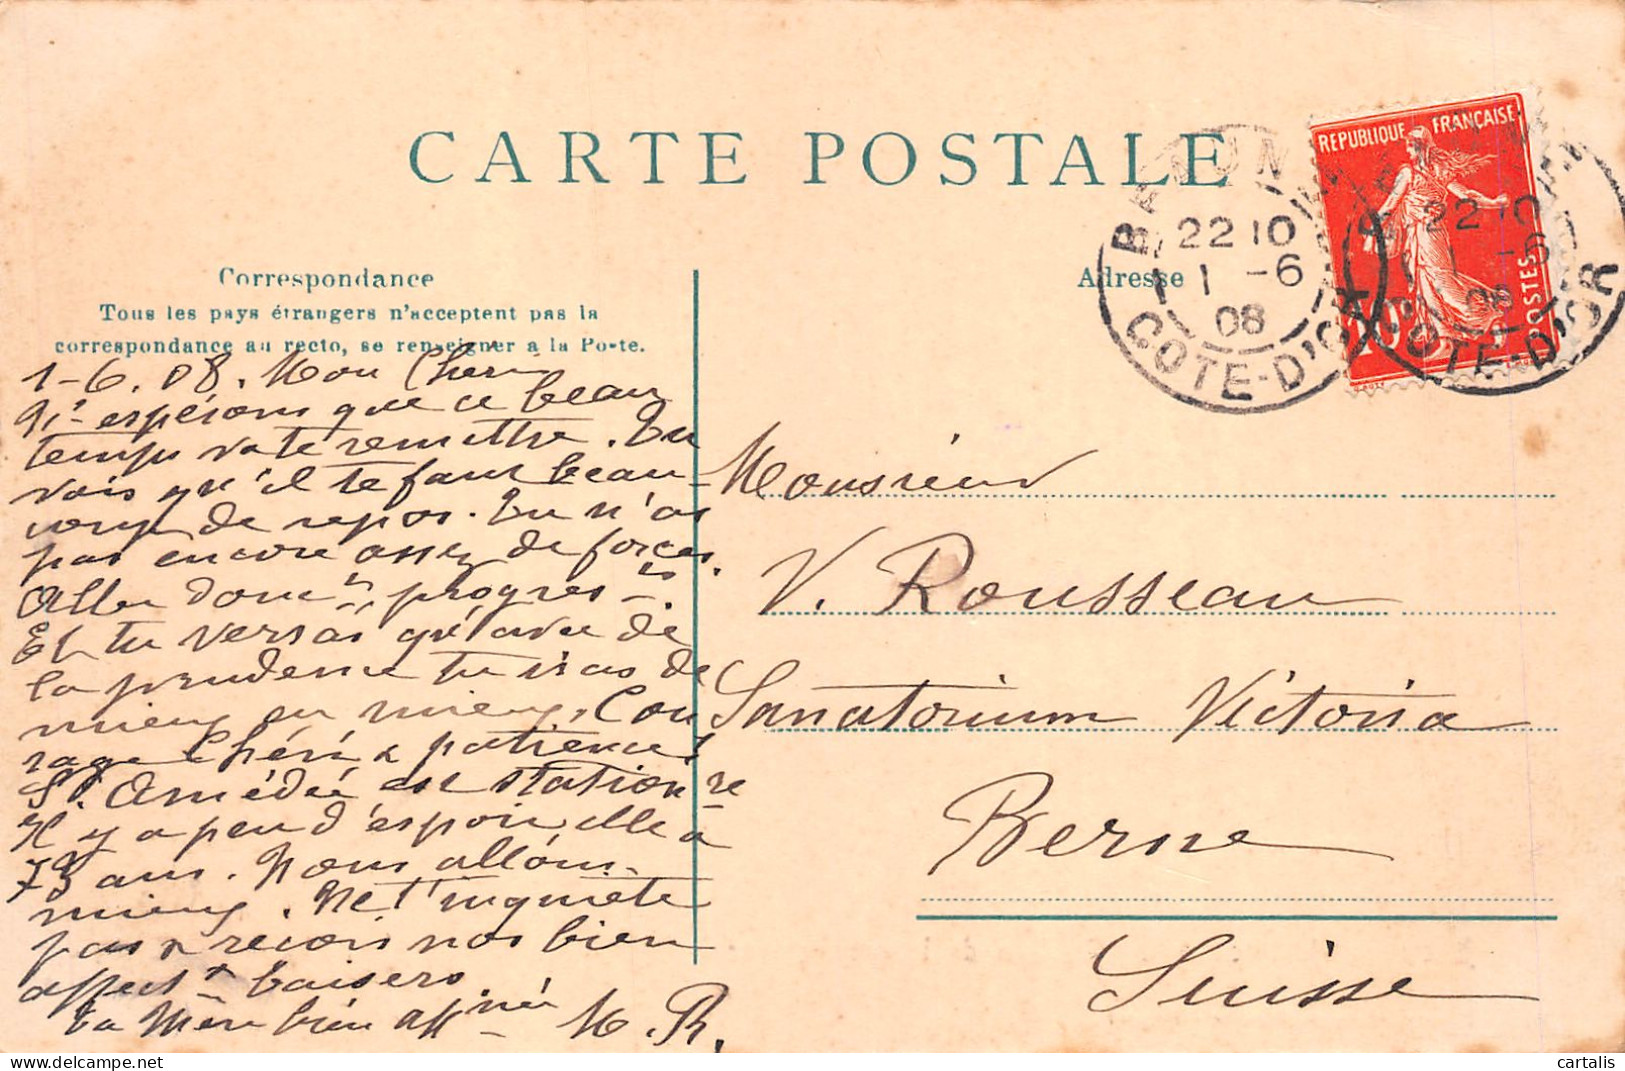 CARTE POSTALE
REPUBLIQUE FRANÇAISE
POSTES
10
22 10
1 -6
08
COTE-D'OR
22 10
1 -6
08
COTE-D'OR
Correspondance
Tous les pays étrangers n'acceptent pas la
correspondance au recto, se renseigner a la Poste.
Adresse
1-6.08. Mon Chéri
espérons que ce beau
temps va te remettre. Tu
vois qu'il te faut beau-
coup de repos. Tu n'as
pas encore assez de forces.
Aller donc progres
Et tu verras qu'avec de
la prudence tu iras de
mieux en mieux. Cou
rage Chéri & patience!
St. Amédée est stationre
Il y a peu d'espoir, elle a
73 ans. Nous allons
mieux. Ne t'inquiète
pas & reçois nos bien
affectt baisers
ta Mère bien aff née M. R.
Monsieur
V. Rousseau
Sanatorium Victoria
Berne
Suisse
cartalis